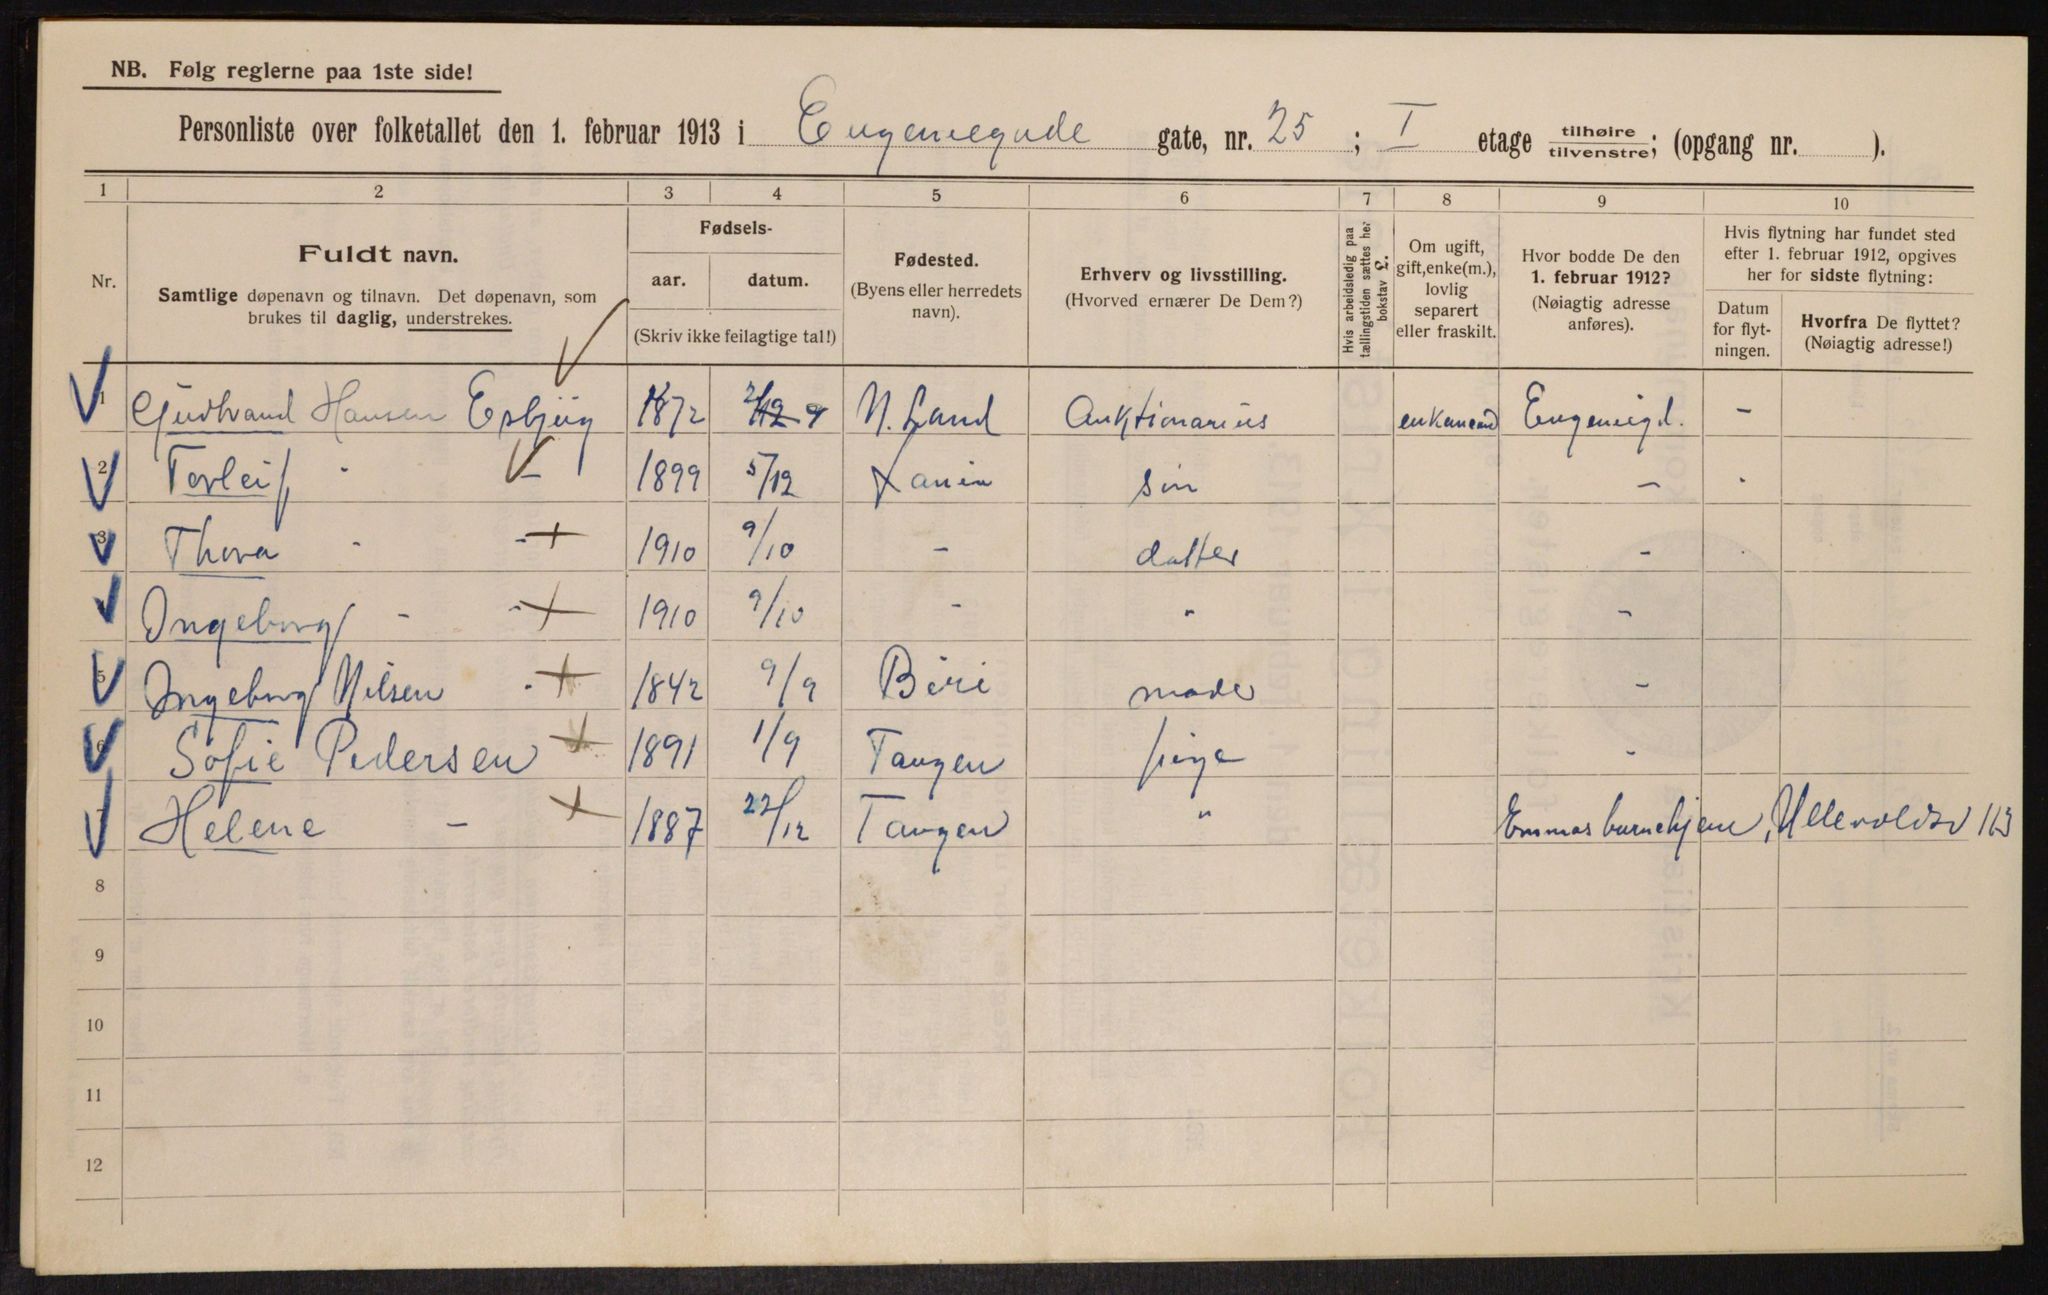 NB. Følg reglerne paa 1ste side!
Personliste over folketallet den 1. februar 1913 i Eugeniegade gate, nr. 25 ; I etage tilhøire / tilvenstre; (opgang nr. ).
1 2 3 4 5 6 7 8 9 10
Nr.
Fuldt navn.
Samtlige døpenavn og tilnavn. Det døpenavn, som
brukes til daglig, understrekes.
Fødsels-
aar. datum.
(Skriv ikke feilagtige tal!)
Fødested.
(Byens eller herredets
navn).
Erhverv og livsstilling.
(Hvorved ernærer De Dem?)
Hvis arbeidsledig paa
tællingstiden sættes her
bokstav £.
Om ugift,
gift, enke(m.),
lovlig
separert
eller fraskilt.
Hvor bodde De den
1. februar 1912?
(Nøiagtig adresse
anføres).
Hvis flytning har fundet sted
efter 1. februar 1912, opgives
her for sidste flytning:
Datum
for flyt-
ningen.
Hvorfra De flyttet?
(Nøiagtig adresse!)
1 Gudbrand Hansen Esbjug 1872 N. Land Auktionarius enkemand Eugenigd. -
2 Torleif " - 1899 5/12 søn - -
3 Thora - - 1910 9/10 - datter -
Ingeborg - - 1910 9/10 - " -
5 Ingeborg Nilsen - 1842 9/9 Biri moder -
6 Sofie Pedersen 1891 1/9 Tangen pige -
7 Helene - 1887 22/12 Tangen " Emmas barnehjem, Ullevoldsv 113
8
9
10
11
12